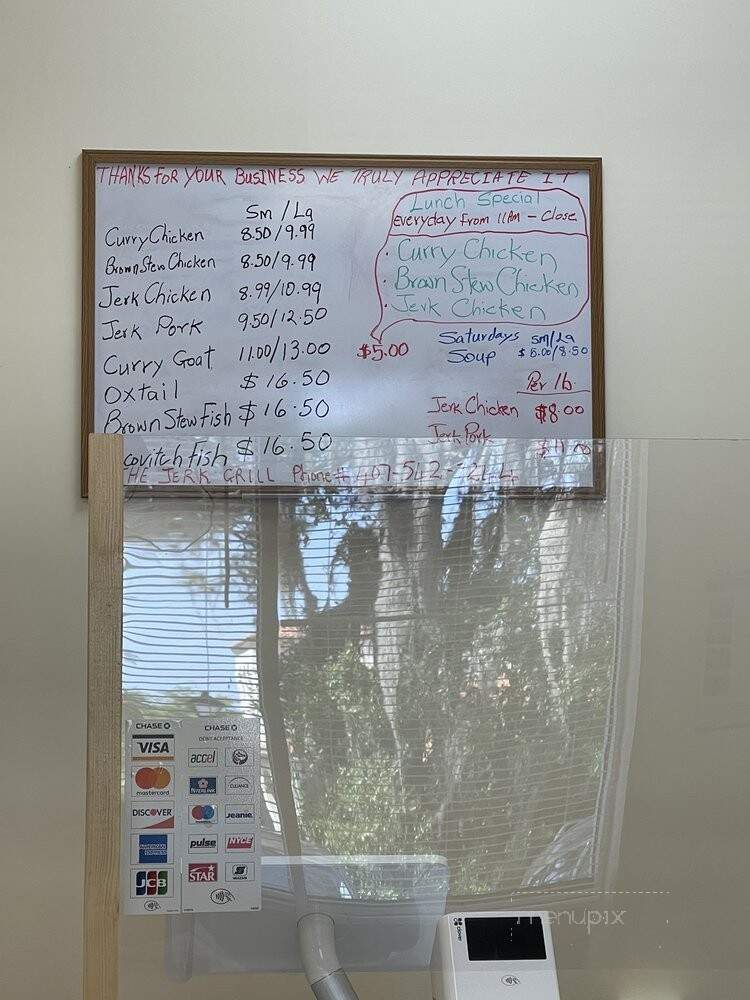 THANKS FOR YOUR BUSINESS WE TRULY APPRECIATE IT
Sm / La
Curry Chicken 8.50/9.99
Brown Stew Chicken 8.50/9.99
Jerk Chicken 8.99/10.99
Jerk Pork 9.50/12.50
Curry Goat 11.00/13.00
Oxtail $16.50
Brown Stew Fish $16.50
covitch fish $16.50
Lunch Special
Everyday From 11AM - Close
· Curry Chicken
· Brown Stew Chicken
· Jerk Chicken
$5.00
Saturdays Sm/La
Soup $5.00/8.50
Per lb.
Jerk Chicken $8.00
Jerk Pork
HE JERK GRILL Phone# 407-542-
CHASE
VISA
mastercard
DISCOVER
AMERICAN EXPRESS
JCB
CHASE
DEBIT ACCEPTANCE
accel
INTERLINK
ALLIANCE
Jeanie
pulse
NYCE
STAR
clover
menupix